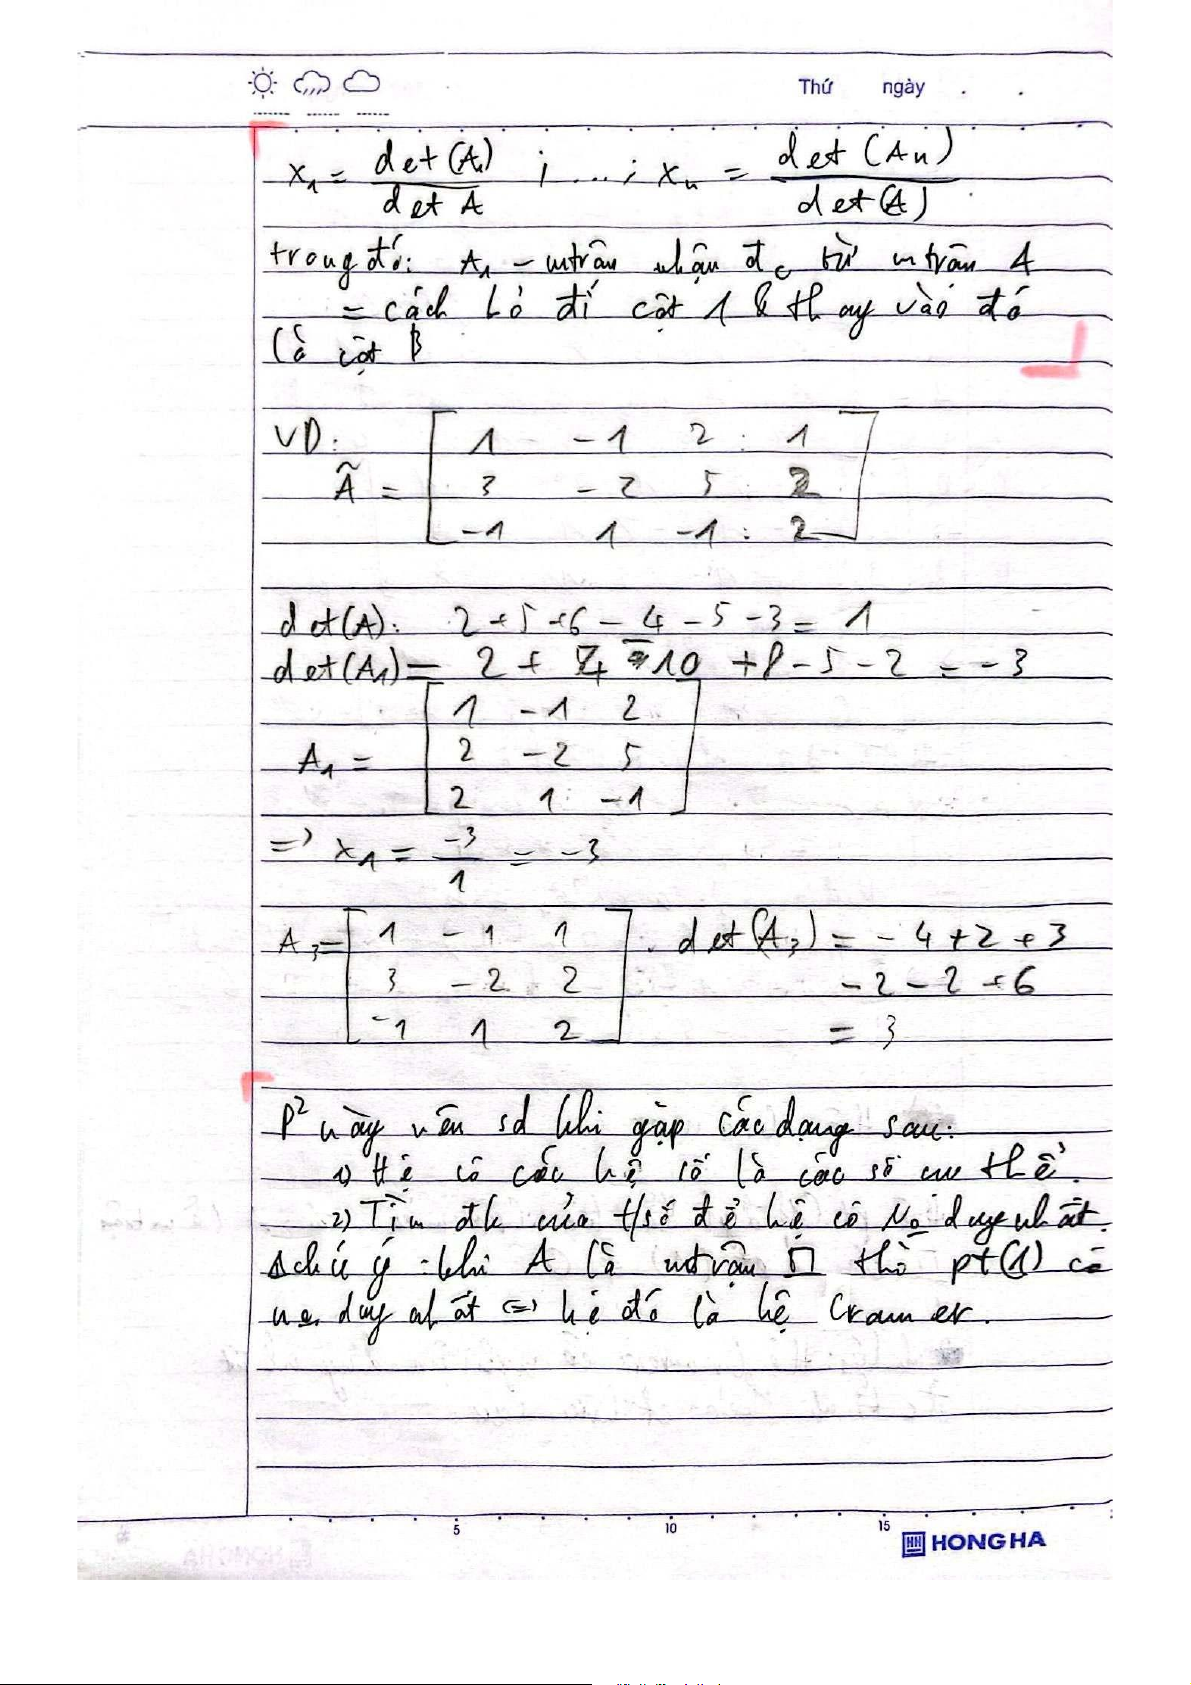 Thứ ngày
x₁ = det(A₁)/det A ; ... ; xₙ = det(Aₙ)/det(A)
trong đó: A₁ - mtrận nhận đc từ mtrận A
= cách bỏ đi cột 1 & thay vào đó
là cột β
VD:
Ã = [ 1 -1 2 : 1
3 -2 5 : 2
-1 1 -1 : 2 ]
det(A): 2 + 5 + 6 - 4 - 5 - 3 = 1
det(A₁) = 2 + 4 - 10 + 8 - 5 - 2 = -3
A₁ = [ 1 -1 2
2 -2 5
2 1 -1 ]
=> x₁ = -3/1 = -3
A₃ = [ 1 -1 1
3 -2 2
-1 1 2 ]
det(A₃) = -4 + 2 + 3
-2 - 2 + 6
= 3
P² này nên sd khi gặp các dạng sau:
1) Hệ có các hệ số là các số cụ thể.
2) Tìm đk của t/số để hệ có No duy nhất.
chú ý: khi A là mtrận □ thì pt(1) có
no duy nhất <=> hệ đó là hệ Cramer.
5 10 15
HONG HA